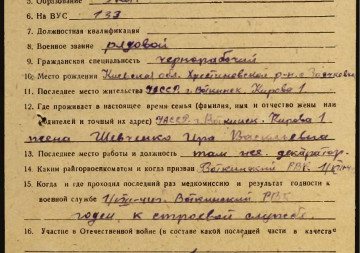 5. Образование
6. На ВУС 133
7. Должностная квалификация
8. Военное звание рядовой
9. Гражданская специальность чернорабочий
10. Место рождения Киевская обл. Христиновской р-н с.
11. Последнее место жительства УАССР. г. Воткинск, Кирова 1
12. Где проживает в настоящее время семья (фамилия, имя и отчество жены или
родителей и точный их адрес) УАССР. г. Воткинск. Кирова 1
жена Шевченко Ира Васильевна
13. Последнее место работы и должность там же.
14. Каким райгорвоенкоматом и когда призван Воткинский РВК
15. Когда и где проходил последний раз медкомиссию и результат годности к
военной службе Воткинский РВК
годен к строевой службе.
16. Участие в Отечественной войне (в составе какой последней части и в качест